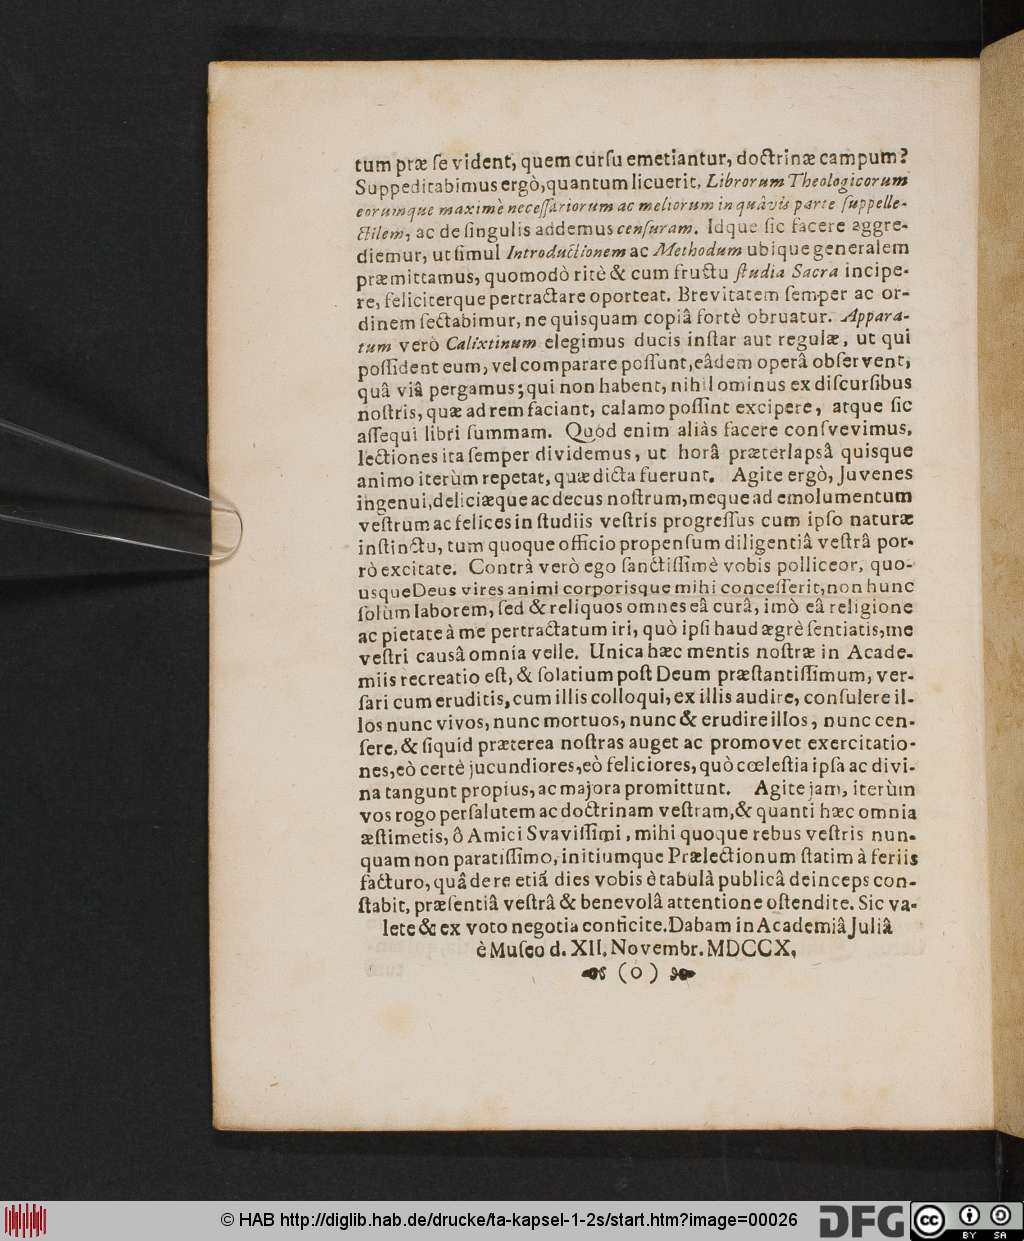 tum præ ſe vident, quem curſu emetiantur, doctrinæ campum?
Suppeditabimus ergò, quantum licuerit, Librorum Theologicorum
eorumque maximè neceſſariorum ac meliorum in quâvis parte ſuppelle-
ctilem, ac de ſingulis addemus cenſuram. Idque ſic facere aggre-
diemur, ut ſimul Introductionem ac Methodum ubique generalem
præmittamus, quomodò ritè & cum fructu ſtudia Sacra incipe-
re, feliciterque pertractare oporteat. Brevitatem ſemper ac or-
dinem ſectabimur, ne quisquam copiâ fortè obruatur. Appara-
tum verò Calixtinum elegimus ducis inſtar aut regulæ, ut qui
poſſident eum, vel comparare poſſunt, eâdem operâ obſervent,
quâ viâ pergamus; qui non habent, nihil ominus ex diſcurſibus
noſtris, quæ ad rem faciant, calamo poſſint excipere, atque ſic
aſſequi libri ſummam. Quod enim aliàs facere conſvevimus,
lectiones ita ſemper dividemus, ut horâ præterlapsâ quisque
animo iterùm repetat, quæ dicta fuerunt. Agite ergò, Juvenes
ingenui, deliciæque ac decus noſtrum, meque ad emolumentum
veſtrum ac felices in ſtudiis veſtris progreſſus cum ipſo naturæ
inſtinctu, tum quoque officio propenſum diligentiâ veſtrâ por-
rò excitate. Contrà verò ego ſanctiſſimè vobis polliceor, quo-
usque Deus vires animi corporisque mihi conceſſerit, non hunc
ſolùm laborem, ſed & reliquos omnes eâ curâ, imò eâ religione
ac pietate à me pertractatum iri, quò ipſi haud ægrè ſentiatis, me
veſtri causâ omnia velle. Unica hæc mentis noſtræ in Acade-
miis recreatio eſt, & ſolatium poſt Deum præſtantiſſimum, ver-
ſari cum eruditis, cum illis colloqui, ex illis audire, conſulere il-
los nunc vivos, nunc mortuos, nunc & erudire illos, nunc cen-
ſere, & ſiquid præterea noſtras auget ac promovet exercitatio-
nes, eò certè jucundiores, eò feliciores, quò cœleſtia ipſa ac divi-
na tangunt propius, ac majora promittunt. Agite jam, iterùm
vos rogo per ſalutem ac doctrinam veſtram, & quanti hæc omnia
æſtimetis, ô Amici Svaviſſimi, mihi quoque rebus veſtris nun-
quam non paratiſſimo, initiumque Prælectionum ſtatim à feriis
facturo, quâ de re etiã dies vobis è tabulà publicâ deinceps con-
ſtabit, præſentiâ veſtrâ & benevolâ attentione oſtendite. Sic va-
lete & ex voto negotia conficite. Dabam in Academiâ Juliâ
è Muſeo d. XII. Novembr. MDCCX.
(o)
© HAB http://diglib.hab.de/drucke/ta-kapsel-1-2s/start.htm?image=00026
DFG
cc BY SA